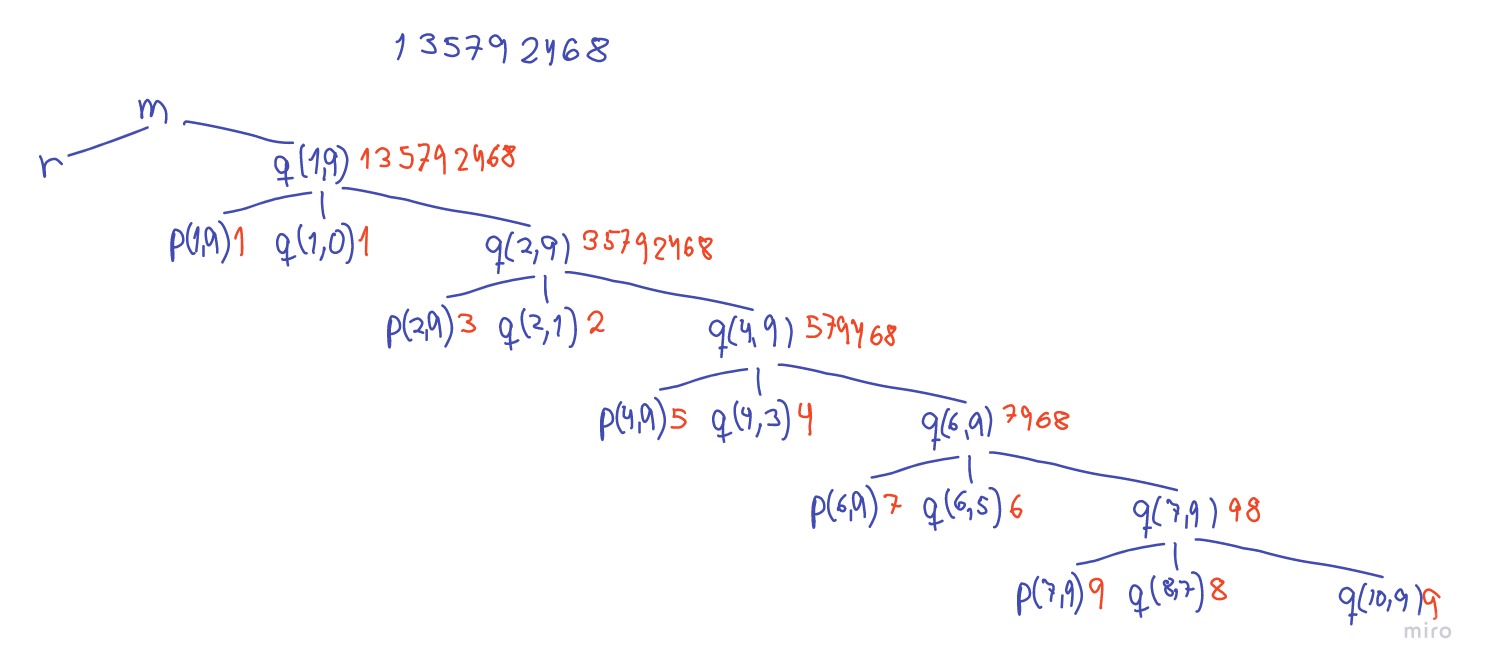 1 3 5 7 9 2 4 6 8
m
r q(1,9) 1 3 5 7 9 2 4 6 8
p(1,9) 1 q(1,0) 1 q(2,9) 3 5 7 9 2 4 6 8
p(2,9) 3 q(2,1) 2 q(4,9) 5 7 9 4 6 8
p(4,9) 5 q(4,3) 4 q(6,9) 7 9 6 8
p(6,9) 7 q(6,5) 6 q(7,9) 9 8
p(7,9) 9 q(8,7) 8 q(10,9) 9
miro